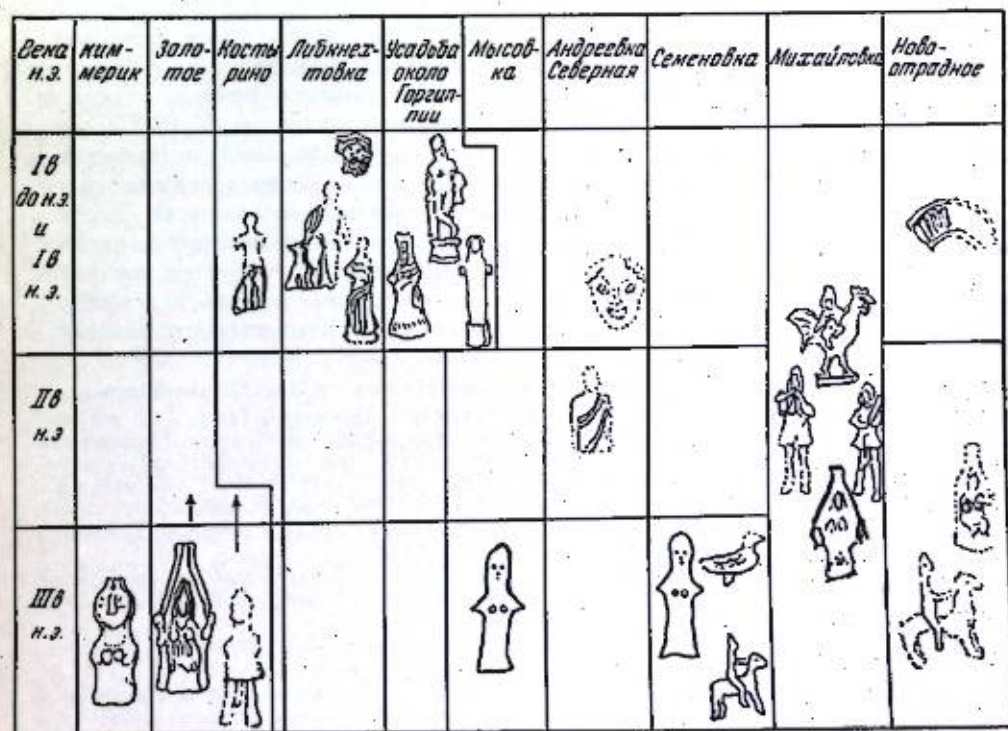 Века
н.э.
ким-
мерик
Золо-
тое
Косты
рино
Либкнех-
товка
Усадьба
около
Горгип-
пии
Мысов-
ка
Андреевка
Северная
Семеновка
Михайловка
Ново-
отрадное
Iв
до н.э.
и
Iв
н.э.
IIв
н.э
IIIв
н.э.